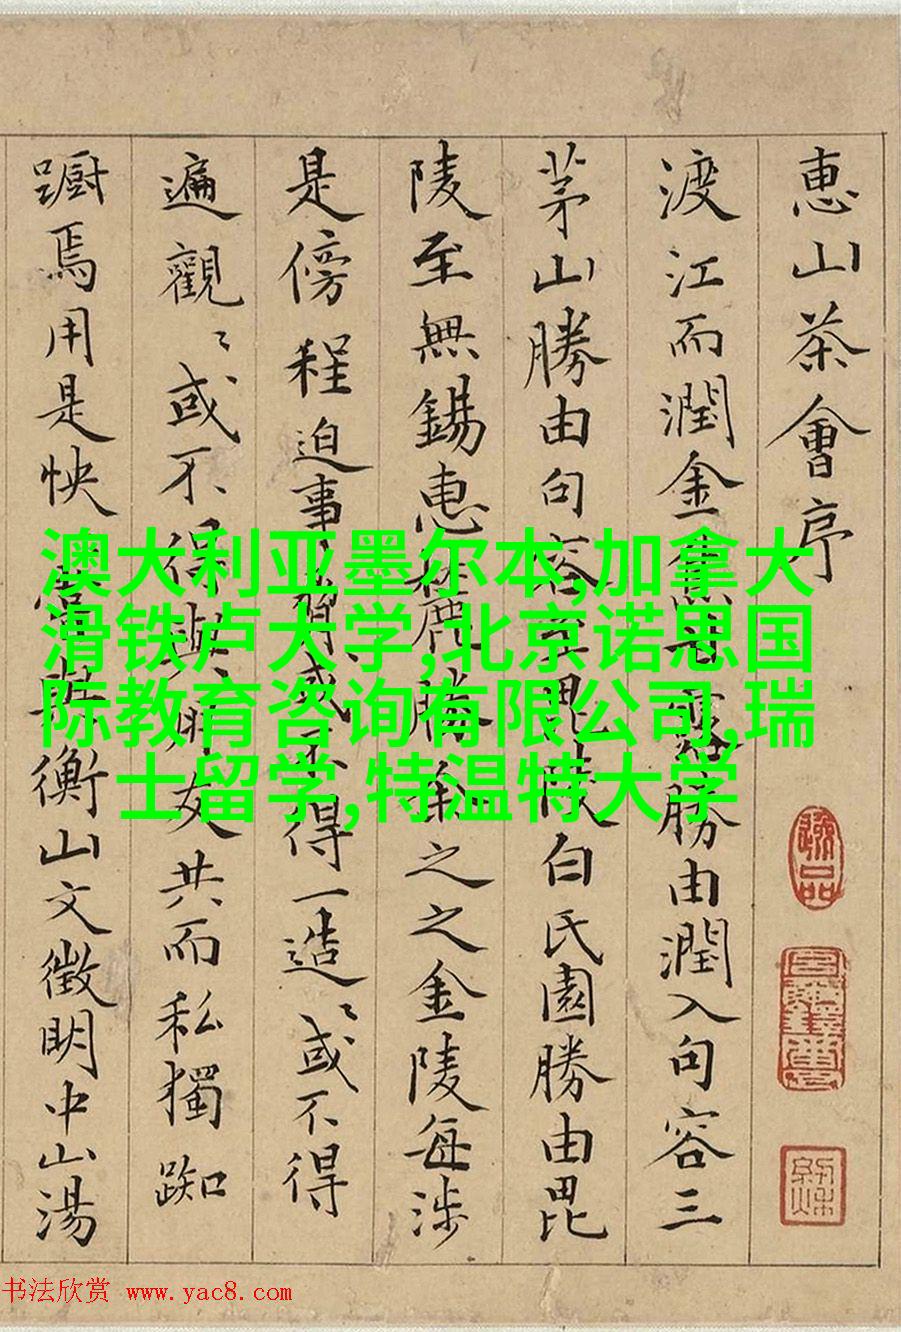 惠山茶會序
渡江而潤金焦甘露勝由潤入句容三
茅山勝由句容至毘陵白氏園勝由毘
陵至無錫惠麓勝錫之之金陵每涉
是傍程迫事爲或不得一造〻或不得
遍觀〻或不得與朋友共而私獨踟
蹰焉用是怏
衡山文徵明中山湯
澳大利亚墨尔本,加拿大
滑铁卢大学,北京诺思国
际教育咨询有限公司,瑞
士留学,特温特大学
书法欣赏 www.yac8.com